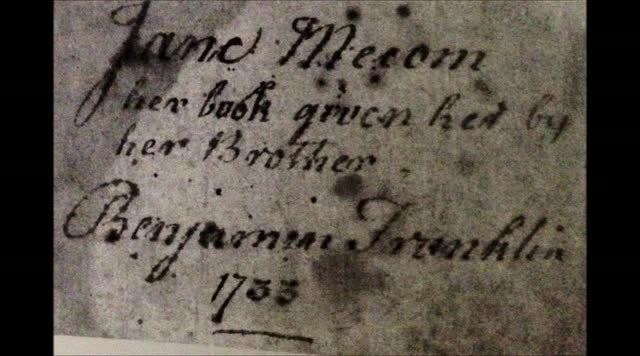 Jane Mecom
her book given her by
her Brother
Benjamin Franklin
1733